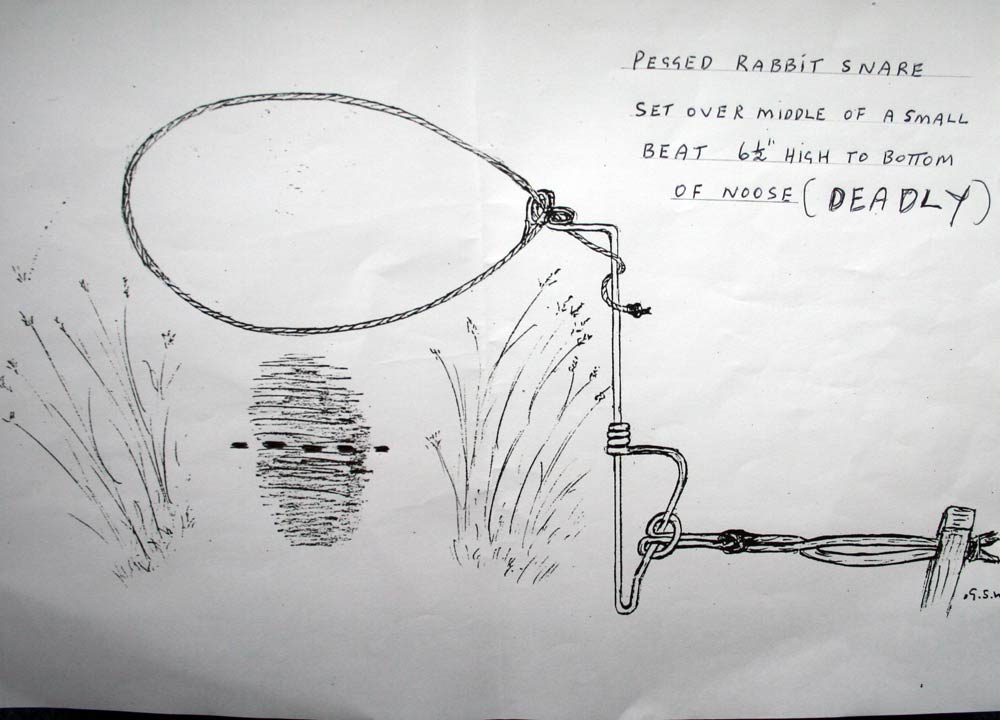 PEGGED RABBiT SNARE
SET OVER MIDDLE OF A SMALL
BEAT 6½" HIGH TO BOTTOM
OF NOOSE (DEADLY)
G.S.W